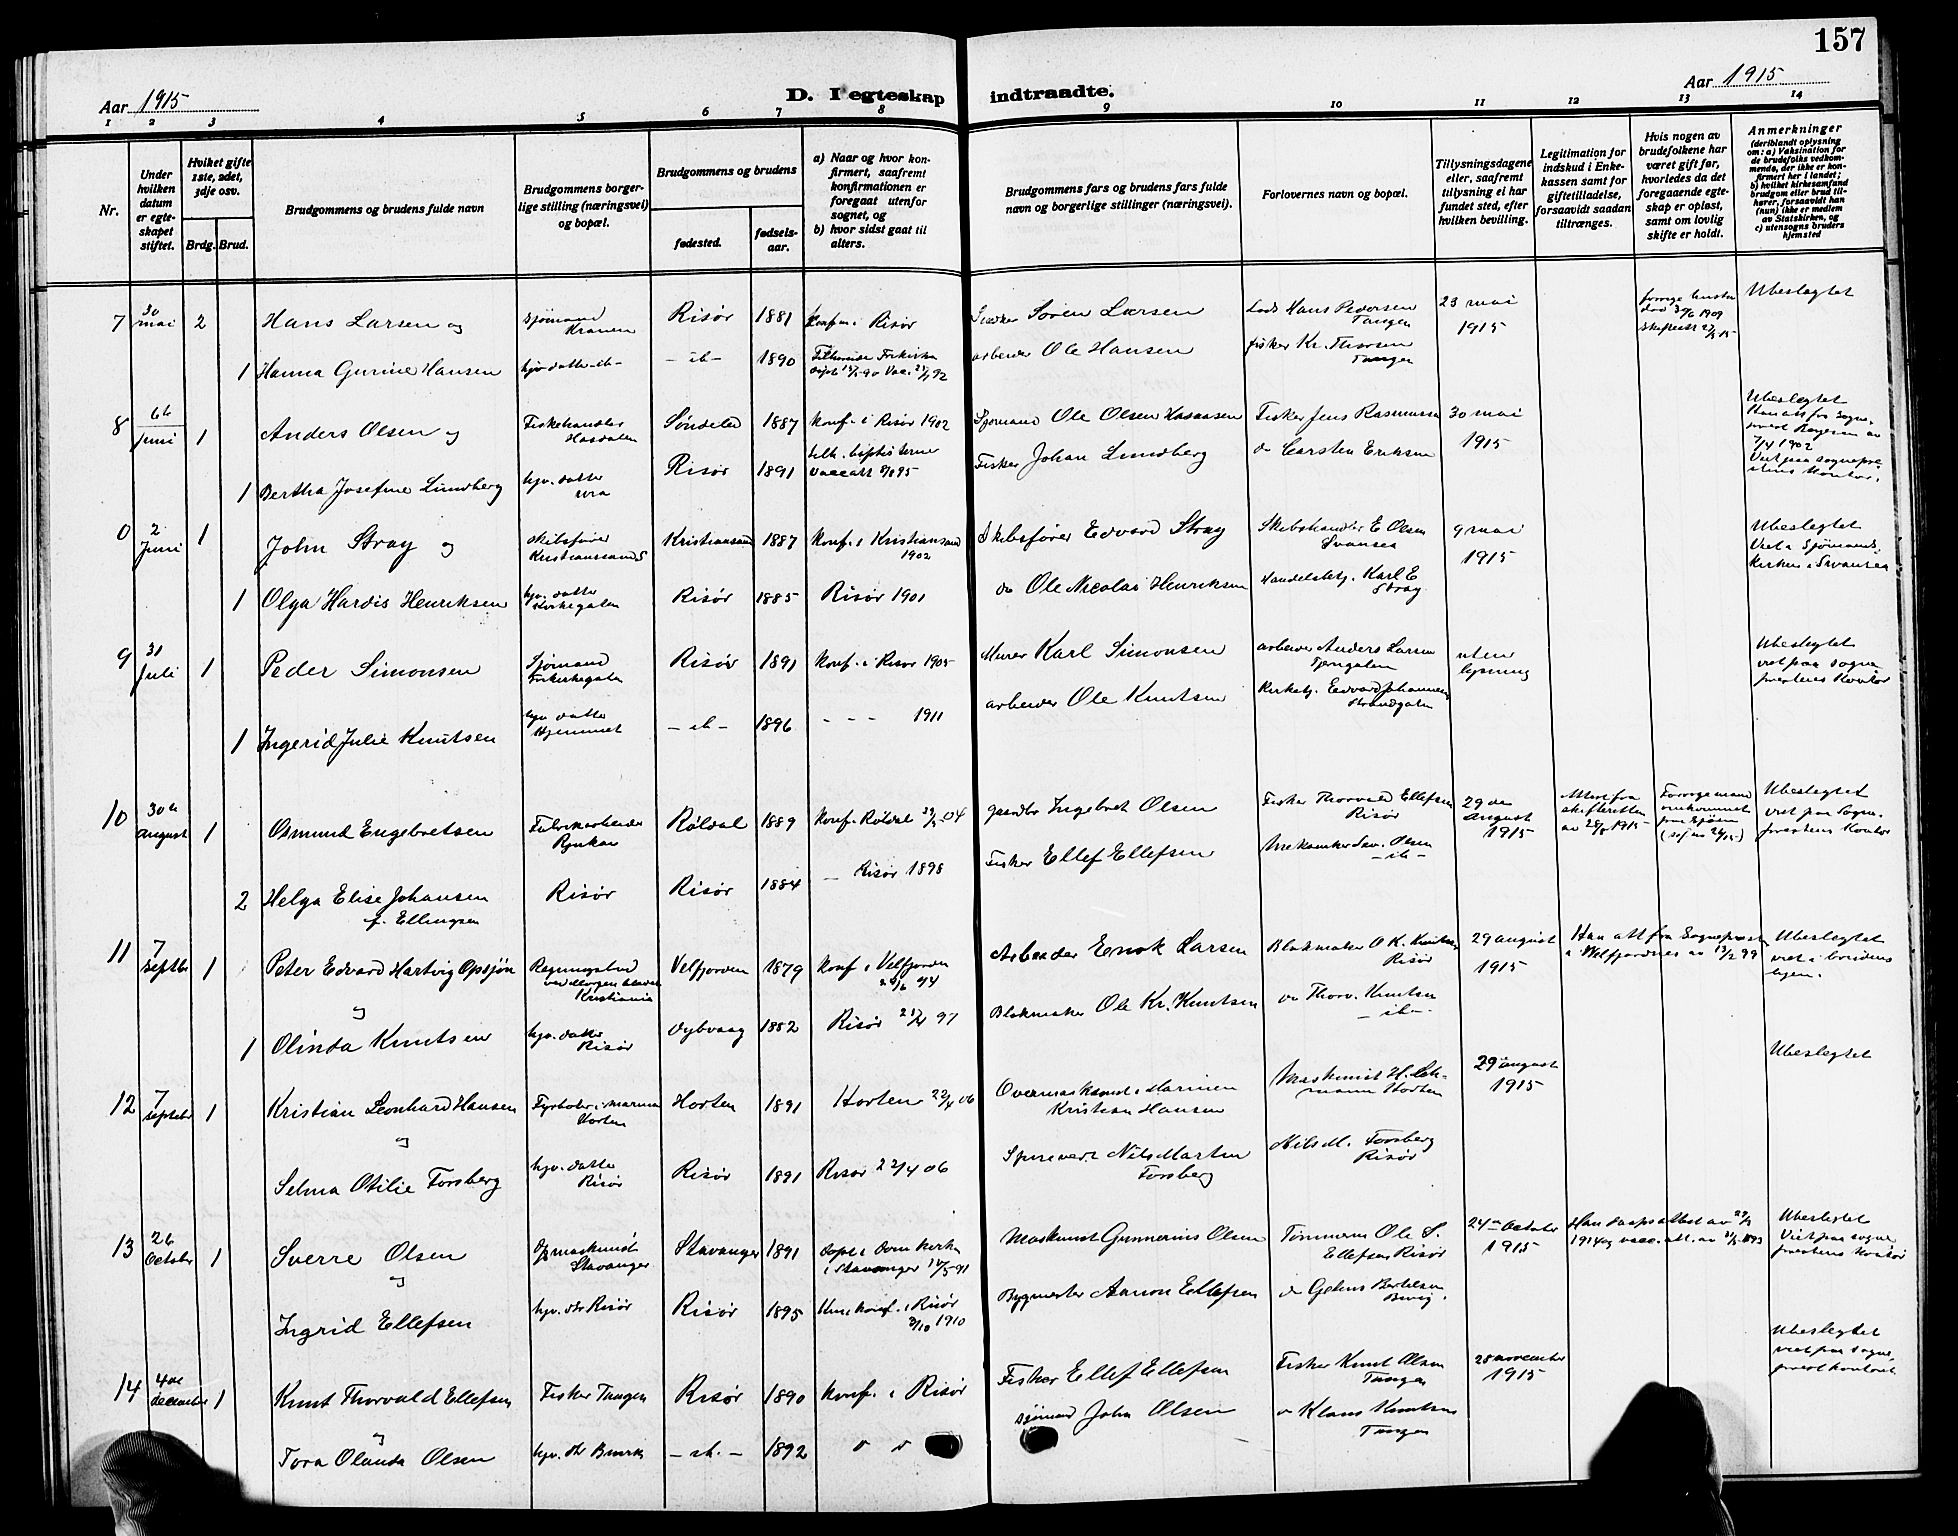 157
Aar 1915
D. I egteskap indtraadte.
Aar 1915
1 2 3 4 5 6 7 8 9 10 11 12 13 14
Nr.
Under hvilken datum er egteskapet stiftet.
Hvilket gifte 1ste, 2det, 3dje osv.
Brdg. Brud.
Brudgommens og brudens fulde navn
Brudgommens borgerlige stilling (næringsvei) og bopæl.
Brudgommens og brudens
fødested.
fødselsaar.
a) Naar og hvor konfirmert, saafremt konfirmationen er foregaat utenfor sognet, og
b) hvor sidst gaat til alters.
Brudgommens fars og brudens fars fulde navn og borgerlige stillinger (næringsvei).
Forlovernes navn og bopæl.
Tillysningsdagene eller, saafremt tillysning ei har fundet sted, efter hvilken bevilling.
Legitimation for indskud i Enkekassen samt for giftetilladelse, forsaavidt saadan tiltrænges.
Hvis nogen av brudefolkene har været gift før, hvorledes da det foregaaende egteskap er opløst, samt om lovlig skifte er holdt.
Anmerkninger (deriblandt oplysning om: a) Vaksination for de brudefolks vedkommende, der ikke er konfirmert her i landet; b) hvilket kirkesamfund brudgom eller brud tilhører, forsaavidt han (hun) ikke er medlem av Statskirken, og c) utensogns bruders hjemsted
7 30 mai 2 Hans Larsen og Sjømand Kranen Risør 1881 Konf. i Risør Søren Larsen Lods Hans Pedersen Tangen 23 mai 1915 Ubeslegtet
1 Hanna Gurine Hansen hjv. datter -ib- -ib- 1890 arbeider Ole Hansen fisker Kr. Tangen
8 6te juni 1 Anders Olsen og Fiskehandler Søndeled 1887 Konf. i Risør 1902 Sjømand Ole Olsen Fisker Jens Rasmussen 30 mai 1915 Ubeslegtet
1 Bertha Josefine Lundberg hjv. datter Risør 1891 Fisker Johan Lundberg do Carsten Eriksen
0 2 Juni 1 John Stray og Skibsfører Kristianssand S Kristianssand 1887 Konf. i Kristianssand 1902 Skibsfører Edvard Stray Skibshandler E Olsen Svansea 9 mai 1915 Ubeslegtet Viet i Sjømandskirken i Svansea
1 Olga Hardis Henriksen hjv. datter Kirkegaten Risør 1885 Risør 1901 do Ole Nicolai Henriksen Handelsbetj. Karl E Stray
9 31 Juli 1 Peder Simonsen Sjømand Risør 1891 Konf. i Risør 1905 Murer Karl Simonsen arbeider Anders Larsen uten lysning Ubeslegtet viet paa sogneprestens Kontor
1 Ingerid Julie Knutsen hjv. datter Hjemmet -ib- 1896 - - - 1911 arbeider Ole Knutsen Kirketj. Edvard Johannesen Strandgaten
10 30te august 1 Osmund Engebretsen Fabrikarbeider Rjukan Røldal 1889 Konf. Røldal Ingebret Olsen Fisker Thorvald Ellefsen Risør 29de August 1915 Attest fra skifteretten av 28/8 1915 Forrige mand omkommet paa sjøen Ubeslegtet viet paa Sogneprestens Kontor
2 Helga Elise Johansen f. Ellingsen Risør Risør 1884 - Risør 1898 Fisker Ellef Ellefsen Olsen -ib-
11 7 Septbr 1 Peter Edvard Hartvig Opsjøn og ved Morgenbladet Kristiania Velfjorden 1879 Konf i Velfjorden Arbeider Enok Larsen Blokmaker O K. Knutsen Risør 29 august 1915 Han att fra Sogneprest i Velfjordnes av 13/2 99 Ubeslegtet viet i brudens hjem.
1 Olinda Knutsen hjv. datter Risør Dybvaag 1882 Risør 97 Blokmaker Ole Kr. Knutsen do Thorv. Knutsen -ib-
12 7 septebr 1 Kristian Leonhard Hansen og Fyrbøter i marinen Horten Horten 1891 Horten 22/4 06 Overmaskinist i Marinen Kristian Hansen Maskinist H. Lehmann Horten 29 august 1915 Ubeslegtet
Selma Otilie Forsberg hjv. datter Risør Risør 1891 Risør 22/4 06 Nils Martin Forsberg Nils M. Forsberg Risør
13 26 October 1 Sverre Olsen og Stavanger Stavanger 1891 døpt i Domkirken i Stavanger Maskinist Gunnerius Olsen Tømmerm Ole S. Ellefsen Risør 24 October 1915 Ubeslegtet Viet paa sogneprestens Kontor
Ingrid Ellefsen hjv. dtr Risør Risør 1895 Hun konf. i Risør 2/10 1910 Bygmester Aanon Ellefsen
14 4de december 1 Knut Thorvald Ellefsen og Fisker Tangen Risør 1890 Konf. i Risør Fisker Ellef Ellefsen Fisker Knut Olsen Tangen 28 november 1915 Ubeslegtet viet paa sogneprestkontoret
Tora Olanda Olsen hjv. dtr -ib.- 1892 sjømand John Olsen do Klaus Knutsen Tangen